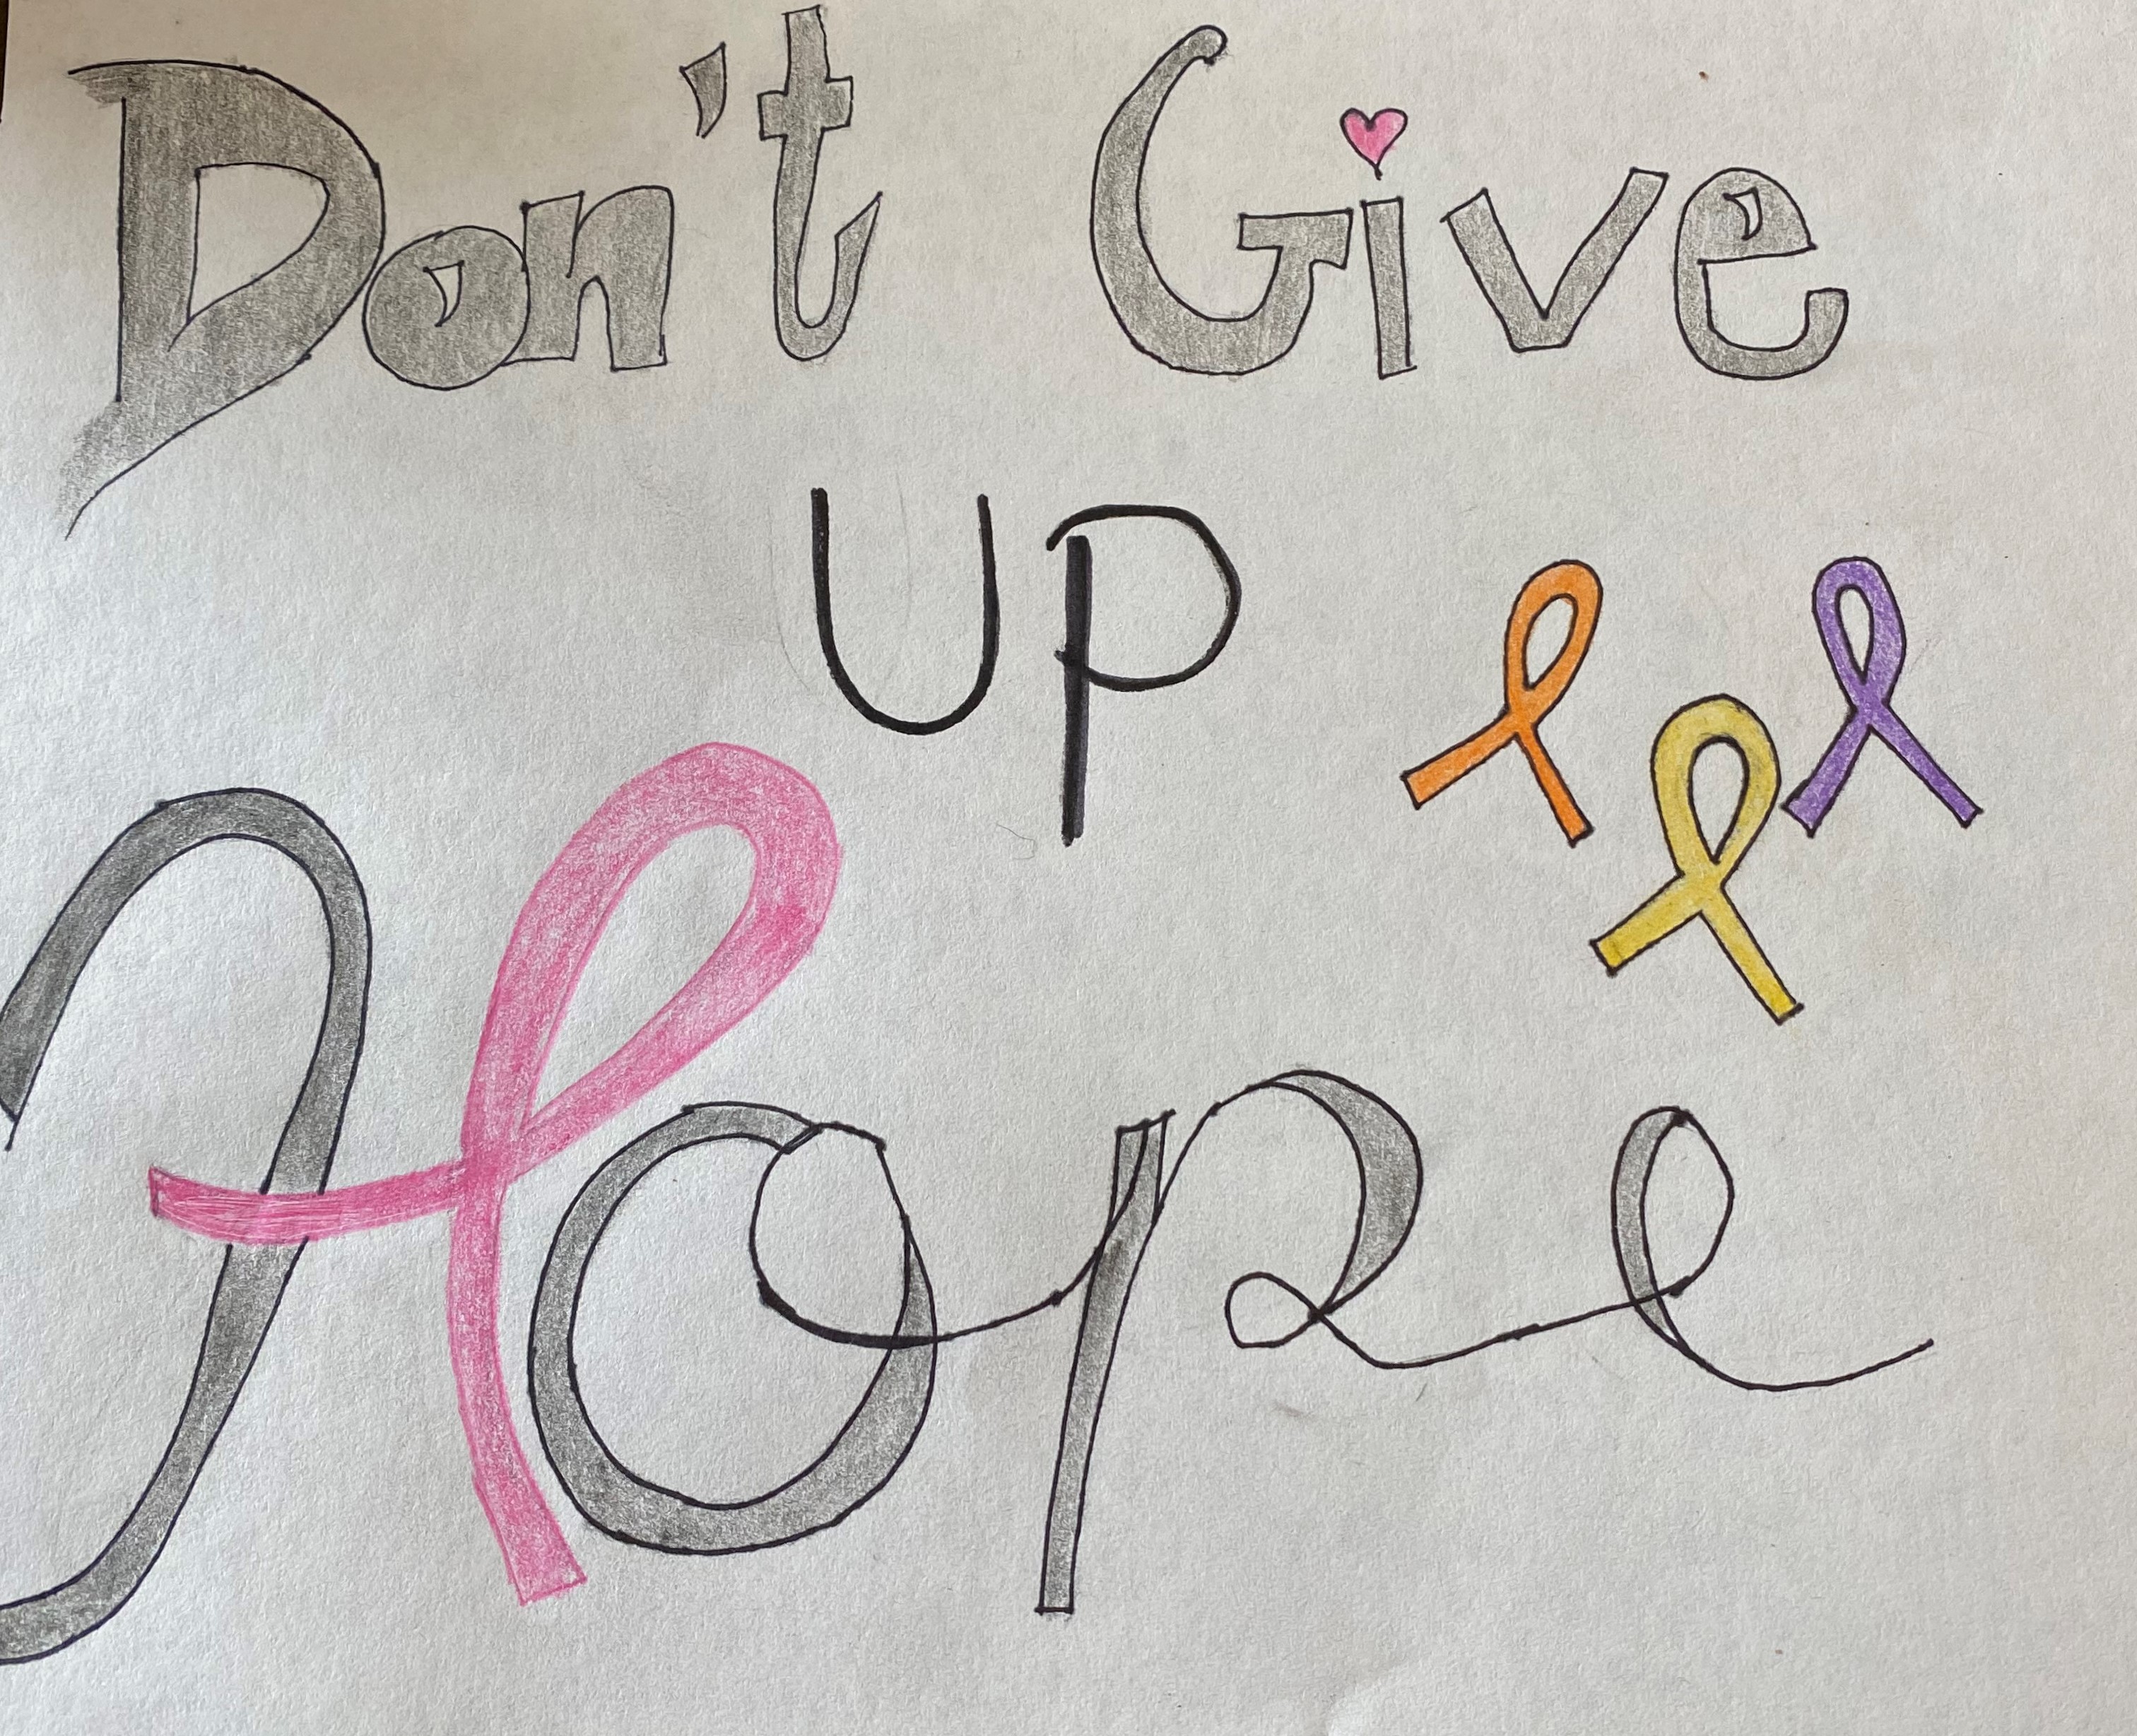 Don't Give
UP
Hope